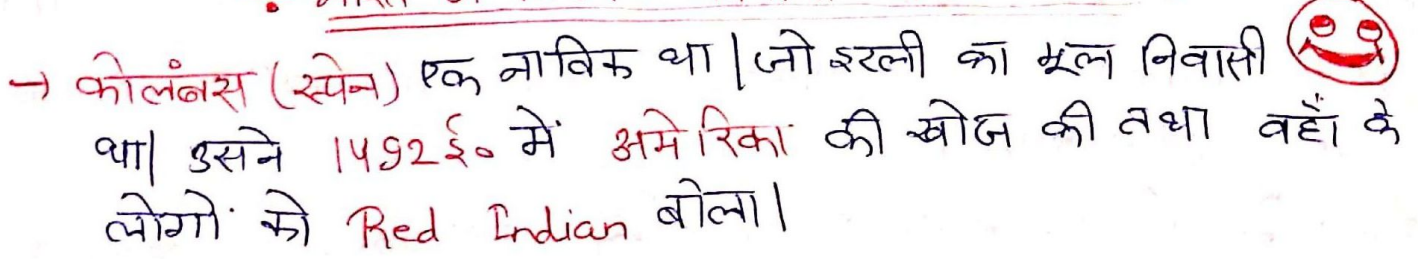 → कोलंबस (स्पेन) एक नाविक था | जो इटली का मूल निवासी
था| उसने 1492 ई० में अमेरिका की खोज की तथा वहाँ के
लोगों को Red Indian बोला |